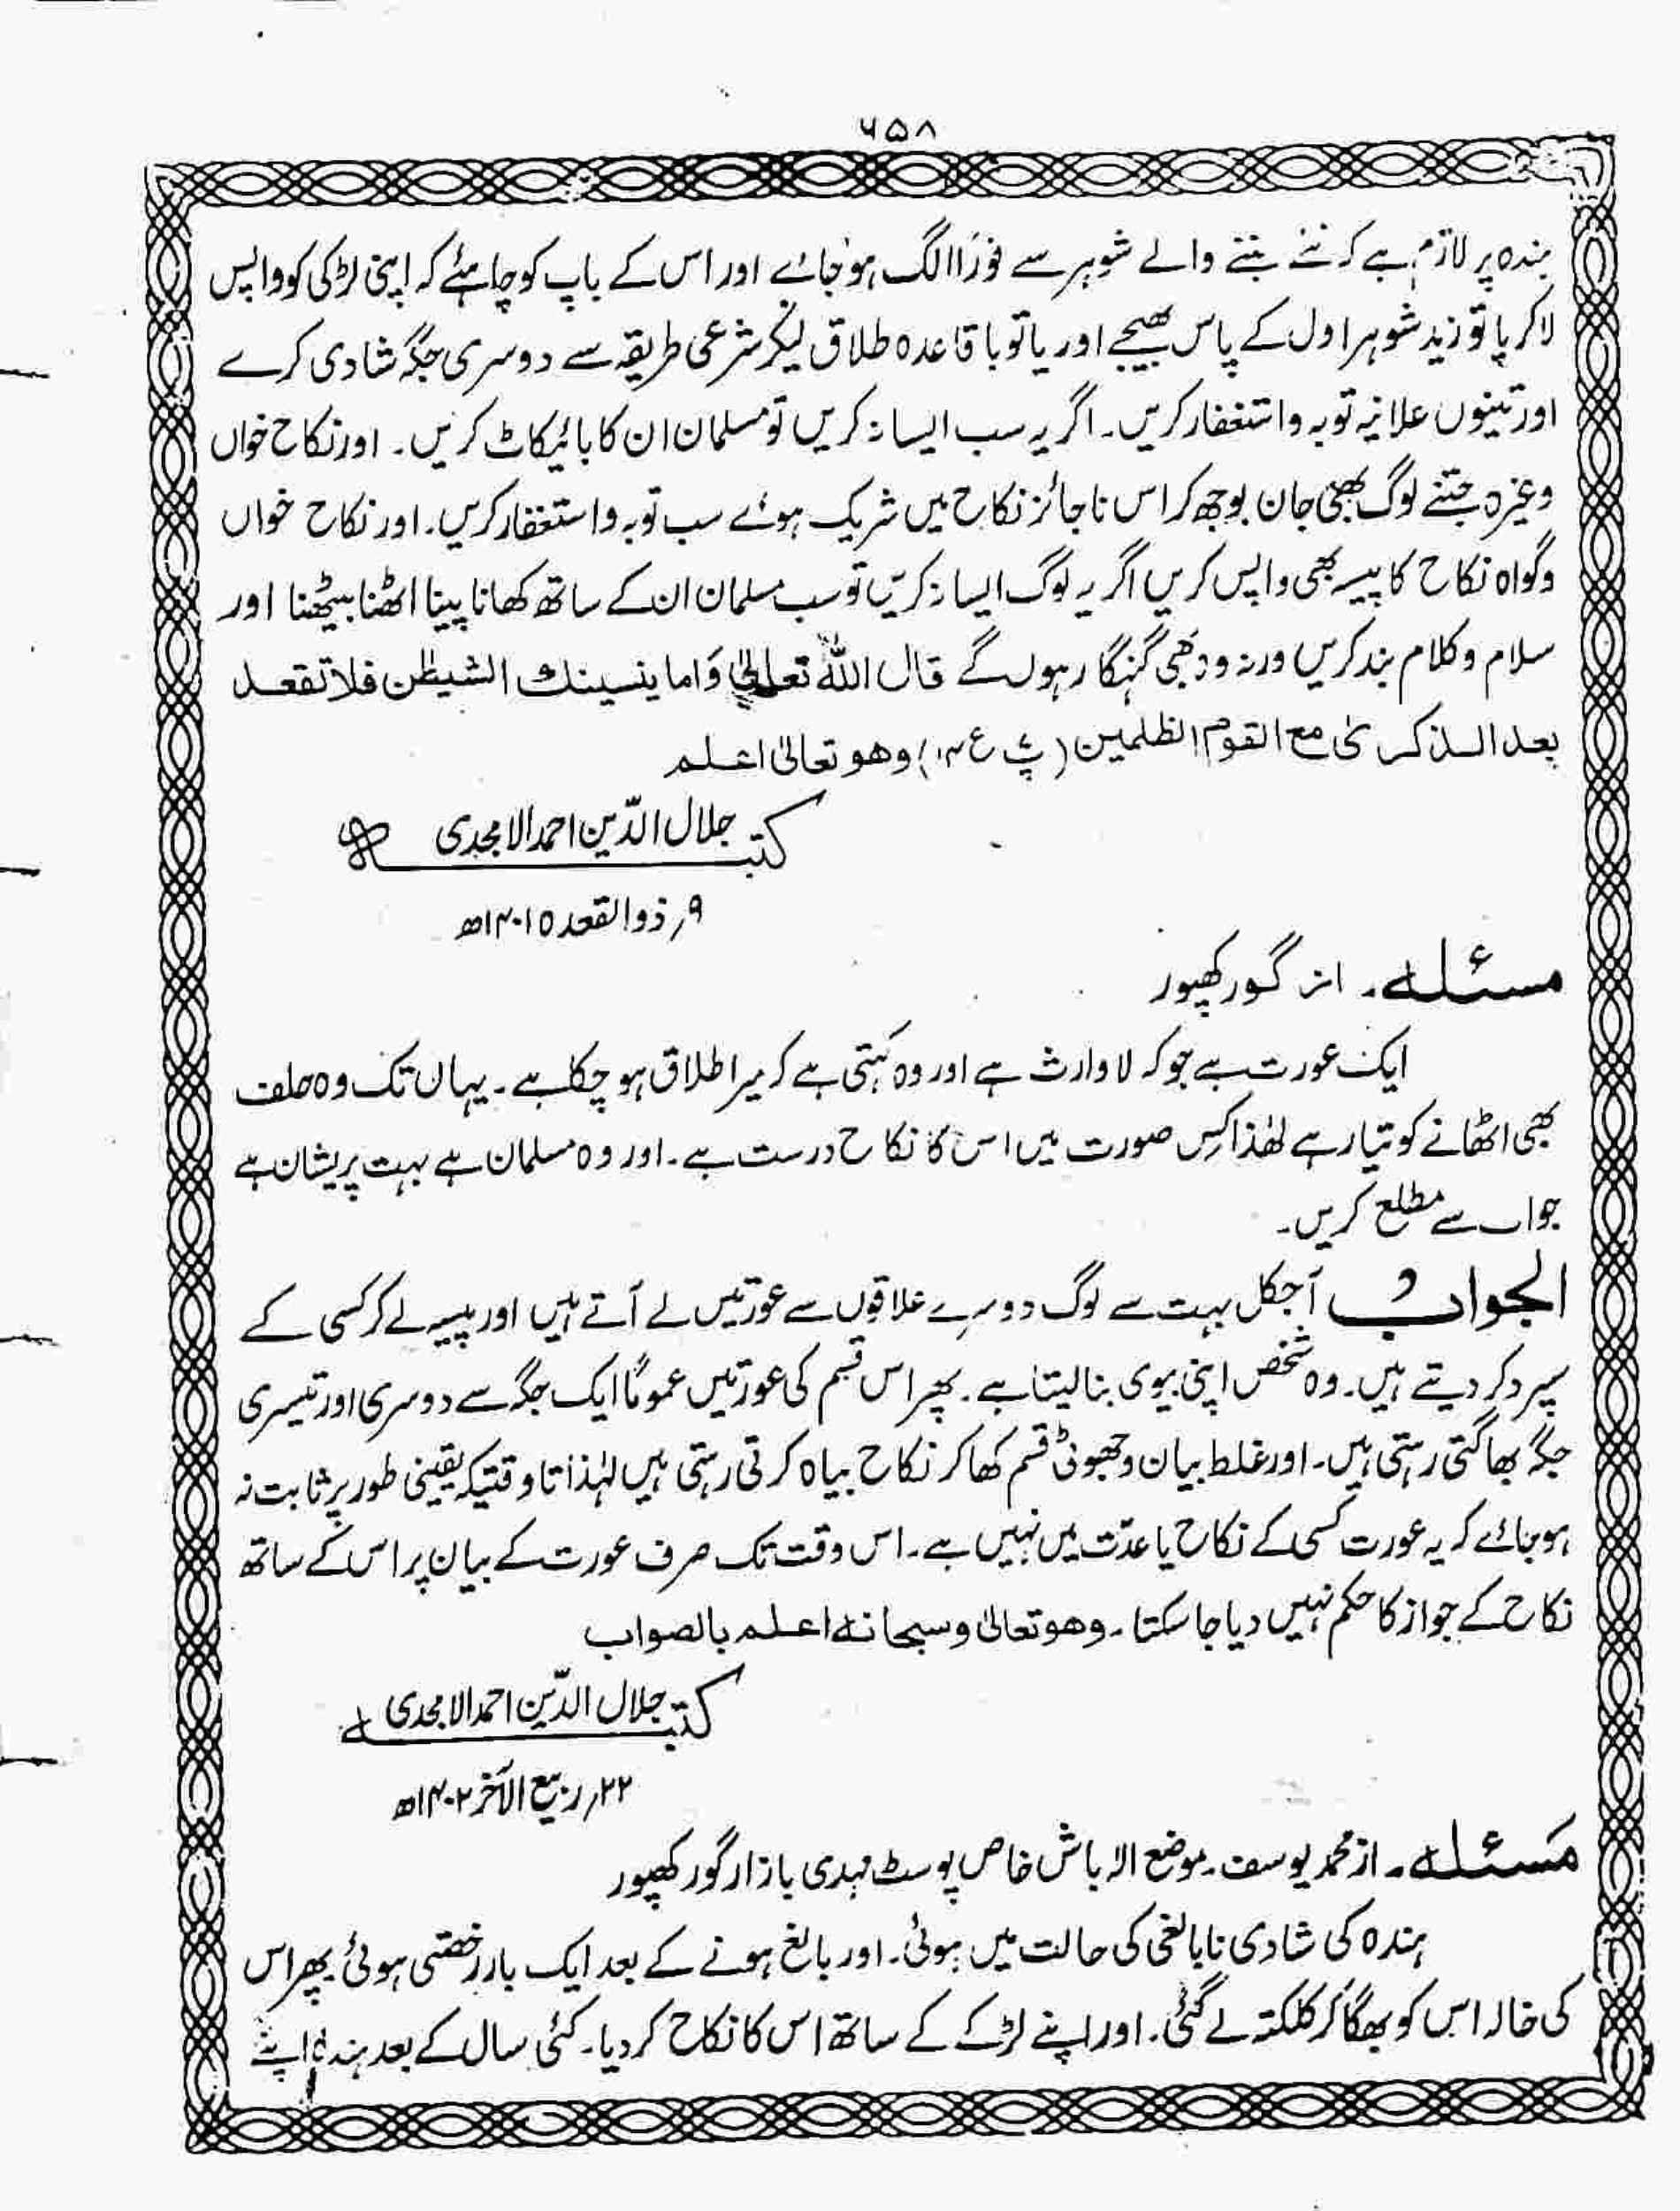 ۶۵۸
ہندہ پر لازم ہے کہ نئے بننے والے شوہر سے فوراً الگ ہو جائے اور اس کے باپ کو چاہئے کہ اپنی لڑکی کو واپس
لاکر یا تو زید شوہر اول کے پاس بھیجے اور یا تو با قاعدہ طلاق لیکر شرعی طریقہ سے دوسری جگہ شادی کرے
اور تینوں علانیہ توبہ واستغفار کریں۔ اگر یہ سب ایسا نہ کریں تو مسلمان ان کا بائیکاٹ کریں۔ اور نکاح خواں
وغیرہ جتنے لوگ بھی جان بوجھ کر اس ناجائز نکاح میں شریک ہوئے سب توبہ واستغفار کریں۔ اور نکاح خواں
وگواہ نکاح کا پیسہ بھی واپس کریں اگر یہ لوگ ایسا نہ کریں تو سب مسلمان ان کے ساتھ کھانا پینا اٹھنا بیٹھنا اور
سلام وکلام بند کریں ورنہ وہ بھی گنہگار ہوں گے قال اللہ تعالیٰ وَاما ینسینك الشیطٰن فلا تقعد
بعد الذکریٰ مع القوم الظلمین (پ۷ ع۱۴) وھو تعالیٰ اعلم
کتبہ جلال الدّین احمد الامجدی
۹؍ ذوالقعدہ ۱۴۰۱ھ
مسئلہ۔ از گورکھپور
ایک عورت ہے جو کہ لاوارث ہے اور وہ کہتی ہے کہ میرا طلاق ہو چکا ہے۔ یہاں تک وہ حلف
بھی اٹھانے کو تیار ہے لھٰذا کِس صورت میں اس کا نکاح درست ہے۔ اور وہ مسلمان ہے بہت پریشان ہے
جواب سے مطلع کریں۔
الجواب آجکل بہت سے لوگ دوسرے علاقوں سے عورتیں لے آتے ہیں اور پیسہ لے کر کسی کے
سپرد کر دیتے ہیں۔ وہ شخص اپنی بیوی بنا لیتا ہے۔ پھر اس قسم کی عورتیں عموماً ایک جگہ سے دوسری اور تیسری
جگہ بھاگتی رہتی ہیں۔ اور غلط بیان وجھوٹی قسم کھا کر نکاح بیاہ کرتی رہتی ہیں لہٰذا تاوقتیکہ یقینی طور پر ثابت نہ
ہو جائے کہ یہ عورت کسی کے نکاح یا عدّت میں نہیں ہے۔ اس وقت تک صرف عورت کے بیان پر اس کے ساتھ
نکاح کے جواز کا حکم نہیں دیا جا سکتا۔ وھو تعالیٰ وسبحانہ اعلم بالصواب
کتبہ جلال الدّین احمد الامجدی
۲۲؍ ربیع الآخر ۱۴۰۲ھ
مَسئلہ۔ از محمد یوسف۔ موضع الا باش خاص پوسٹ نہدی بازار گورکھپور
ہندہ کی شادی نابالغی کی حالت میں ہوئی۔ اور بالغ ہونے کے بعد ایک بار رخصتی ہوئی پھر اس
کی خالہ اس کو بھگا کر کلکتہ لے گئی۔ اور اپنے لڑکے کے ساتھ اس کا نکاح کر دیا۔ کئی سال کے بعد ہندہ اپنے